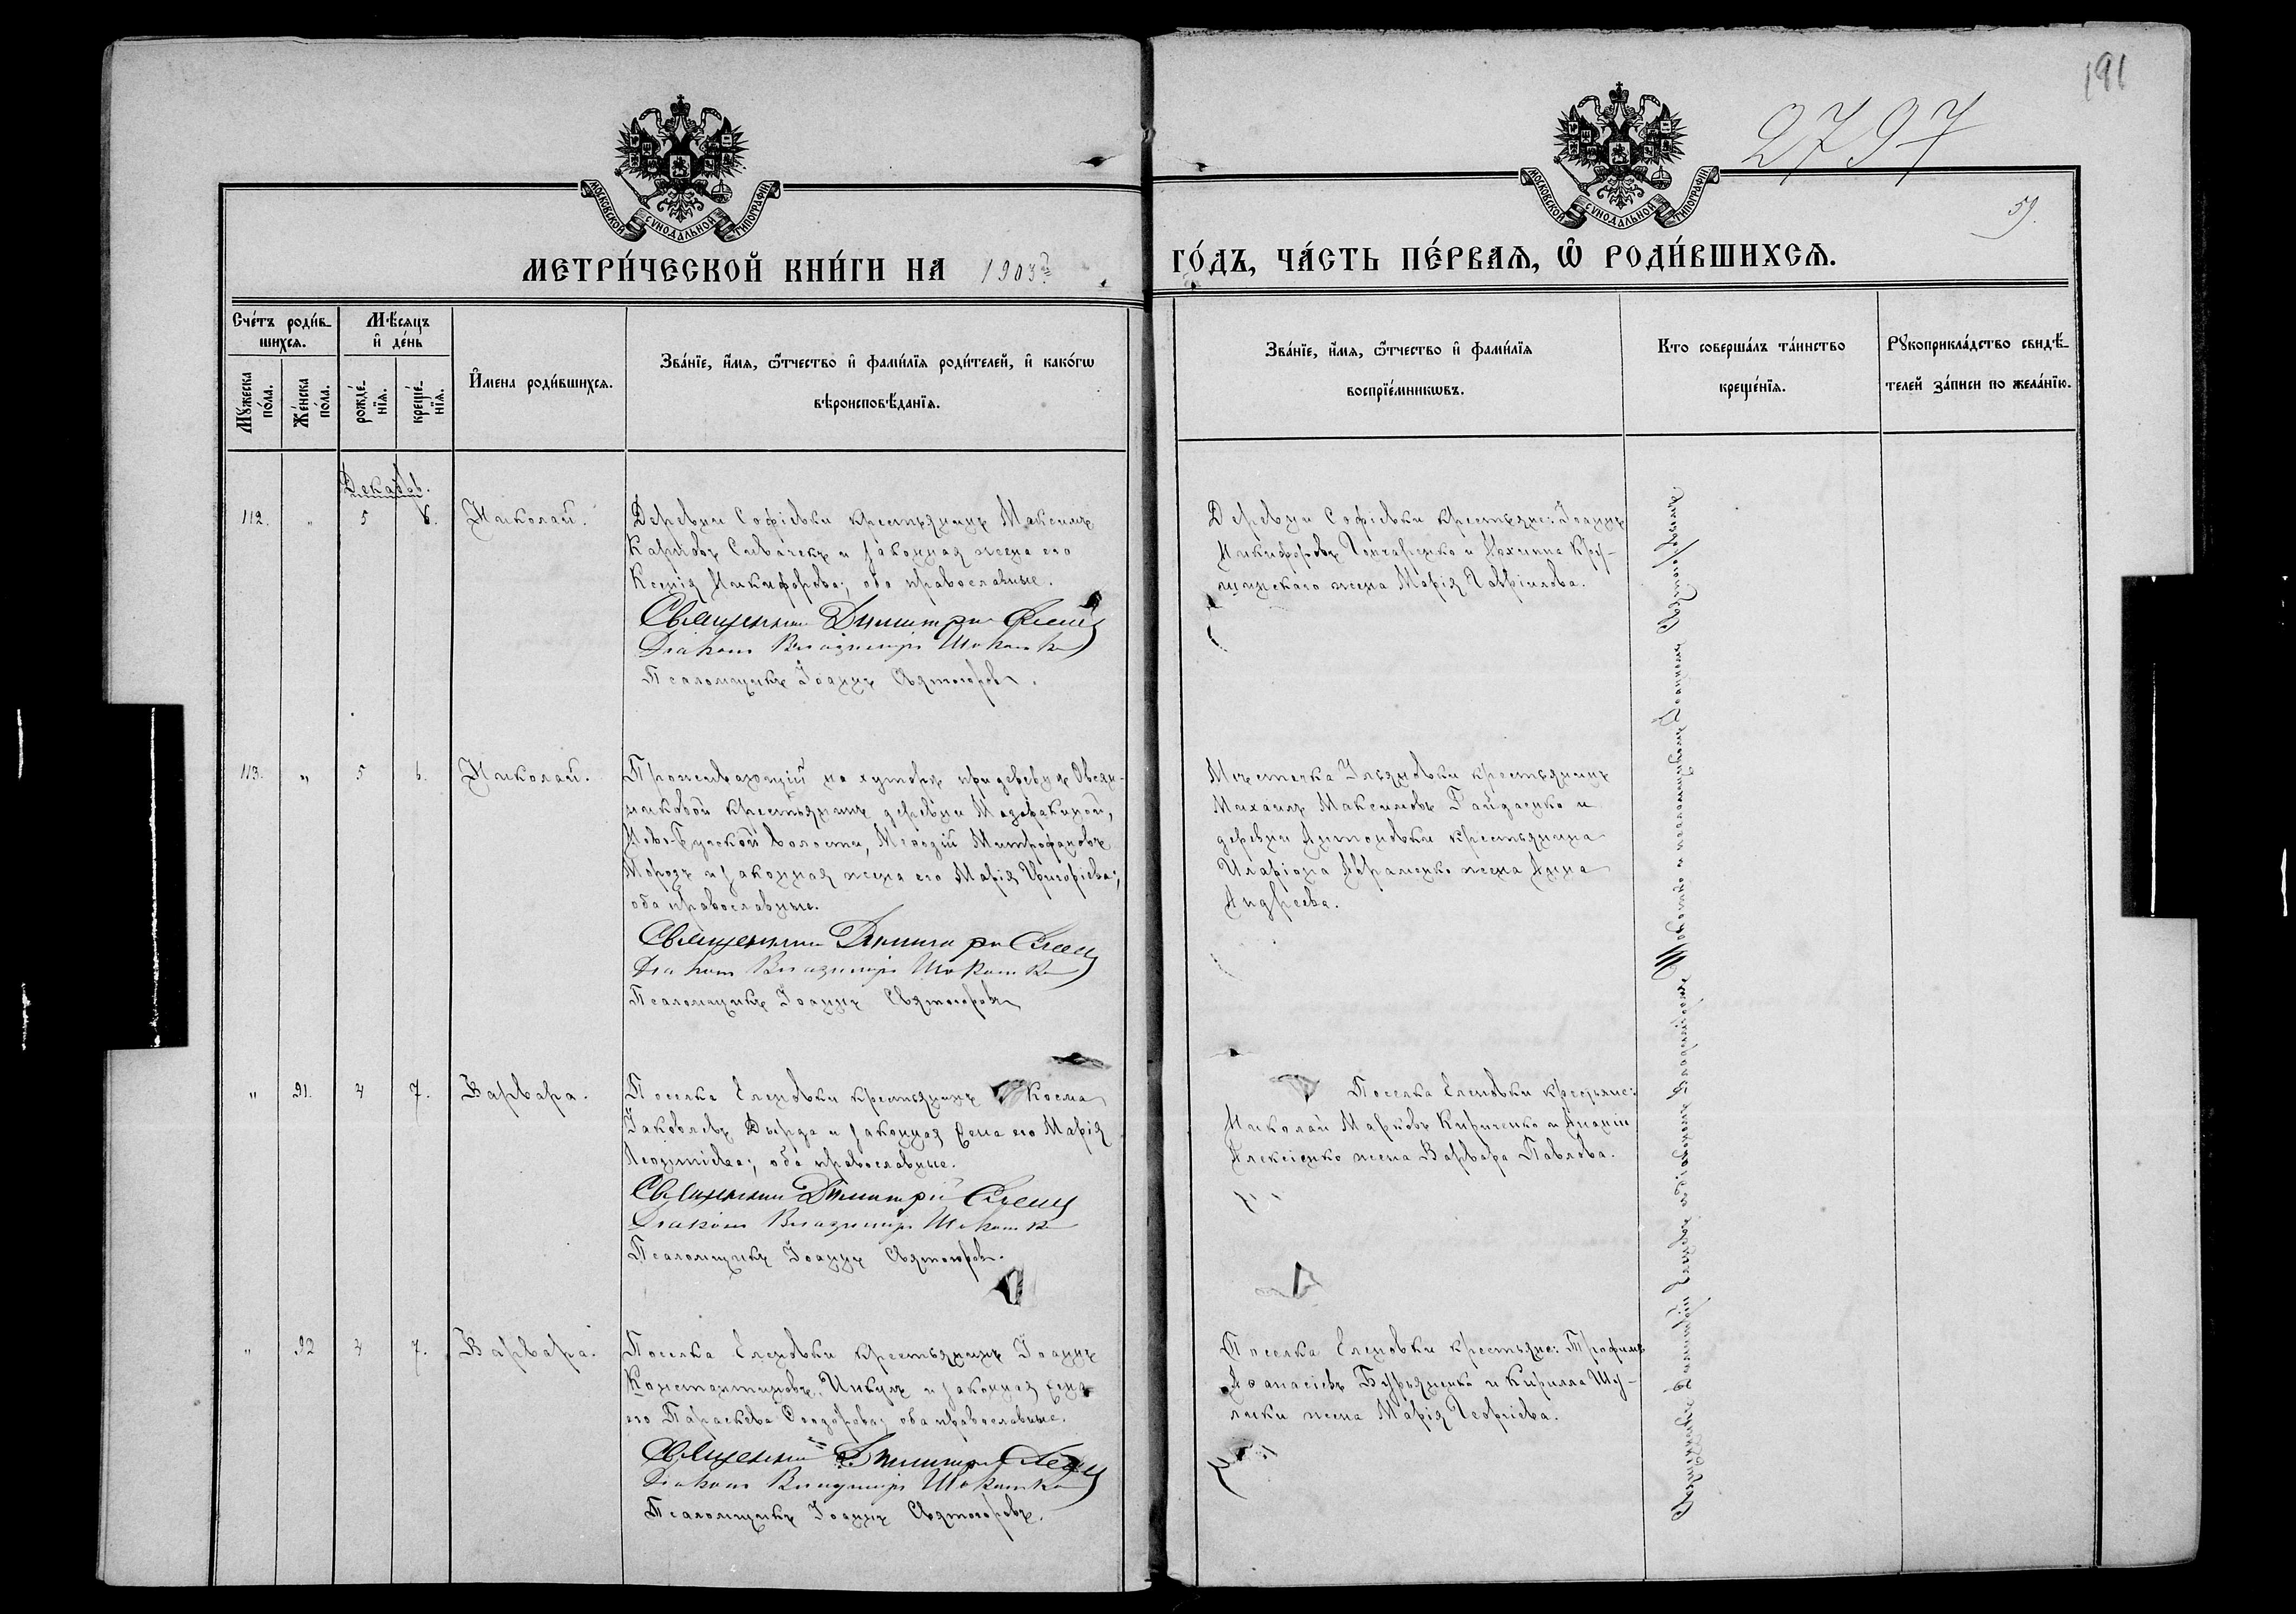 191
2797
59.
МОСКОВСКОЙ СѴНОДАЛЬНОЙ ТИПОГРАФІИ
МОСКОВСКОЙ СѴНОДАЛЬНОЙ ТИПОГРАФІИ
МЕТРИ́ЧЕСКОЙ КНИ́ГИ НА 1903й
ГО́ДЪ, ЧА́СТЬ ПЕ́РВАѦ, Ѽ РОДИ́ВШИХСѦ.
Сче́тъ роди́в-
шихсѧ.
Мꙋ́жеска по́ла.
Же́нска по́ла.
Мѣ́сѧцъ
и҆ де́нь
рожде́-нїѧ.
креще́-нїѧ.
И҆мена роди́вшихсѧ.
Зва́нїе, и҆́мѧ, ѻ҆́тчество и҆ фами́лїѧ роди́телей, и҆ како́гѡ
вѣроисповѣ́данїѧ.
Зва́нїе, и҆́мѧ, ѻ҆́тчество и҆ фами́лїѧ
воспрїе́мникѡвъ.
Кто соверша́лъ та́инство
креще́нїѧ.
Рꙋкоприкла́дство свидѣ́-
телей за́писи по жела́нїю.
Декабрь.
112. " 5 6. Николай.
Деревни Софіевки крестьянинъ Максимъ
Карповъ Сивачекъ и законная жена его
Ксенія Никифорова; оба православные.
Священник Димитрий
Діаконъ Владимиръ
Псаломщикъ Іоаннъ Святогоровъ.
Деревни Софіевки крестьяне: Іоаннъ
Никифоровъ Гончаренко и
жена Марія Гавріилова.
113. " 5 6. Николай.
Проживающій на хуторѣ при деревнѣ Овсян-
никовой крестьянинъ деревни
волости, Митрофановъ
Морозъ и законная жена его Марія Григоріева;
оба православные.
Священник Димитрий
Діаконъ Владимиръ
Псаломщикъ Іоаннъ Святогоровъ
Мѣстечка Ульяновки крестьянинъ
Михаилъ Максимовъ Гайдаенко и
деревни Антоновки крестьянина
Иларіона Авраменко жена Анна
Андреева.
" 91. 4 7. Варвара.
Поселка Еленовки крестьянинъ Косма
Іаковлевъ Дырда и законная жена его Марія
Леонтіева; оба православные.
Священник Димитрій
Діаконъ Владимиръ
Псаломщикъ Іоаннъ Святогоровъ.
Поселка Еленовки крестьяне:
Николай Марковъ Кириченко и Ананіи
Алексіенко жена Варвара Павлова.
" 92 4 7. Варвара.
Поселка Еленовки крестьянинъ Іоаннъ
Константиновъ и законная жена
его Параскева Ѳеодорова; оба православные.
Священник Димитрий
Діаконъ Владимиръ
Псаломщикъ Іоаннъ Святогоровъ.
Поселка Еленовки крестьяне: Трофимъ
Аѳанасіевъ Бурьяненко и Кирилла Шу-
лики жена Марія Георгіева.
Священникъ Димитрій съ діакономъ Владиміромъ и псаломщикомъ Іоанномъ Святогоровымъ